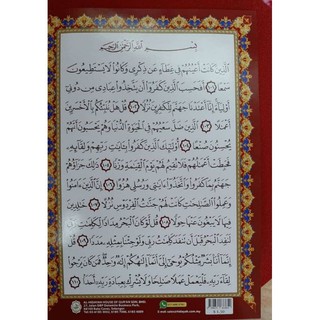 بِسْمِ اللَّهِ الرَّحْمَٰنِ الرَّحِيمِ
الَّذِينَ كَانَتْ أَعْيُنُهُمْ فِي غِطَاءٍ عَن ذِكْرِي وَكَانُوا لَا يَسْتَطِيعُونَ
سَمْعًا ١٠١ أَفَحَسِبَ الَّذِينَ كَفَرُوا أَن يَتَّخِذُوا عِبَادِي مِن دُونِي
أَوْلِيَاءَ إِنَّا أَعْتَدْنَا جَهَنَّمَ لِلْكَافِرِينَ نُزُلًا ١٠٢ قُلْ هَلْ نُنَبِّئُكُم بِالْأَخْسَرِينَ
أَعْمَالًا ١٠٣ الَّذِينَ ضَلَّ سَعْيُهُمْ فِي الْحَيَاةِ الدُّنْيَا وَهُمْ يَحْسَبُونَ أَنَّهُمْ
يُحْسِنُونَ صُنْعًا ١٠٤ أُولَٰئِكَ الَّذِينَ كَفَرُوا بِآيَاتِ رَبِّهِمْ وَلِقَائِهِ
فَحَبِطَتْ أَعْمَالُهُمْ فَلَا نُقِيمُ لَهُمْ يَوْمَ الْقِيَامَةِ وَزْنًا ١٠٥ ذَٰلِكَ جَزَاؤُهُمْ
جَهَنَّمُ بِمَا كَفَرُوا وَاتَّخَذُوا آيَاتِي وَرُسُلِي هُزُوًا ١٠٦ إِنَّ الَّذِينَ آمَنُوا
وَعَمِلُوا الصَّالِحَاتِ كَانَتْ لَهُمْ جَنَّاتُ الْفِرْدَوْسِ نُزُلًا ١٠٧ خَالِدِينَ
فِيهَا لَا يَبْغُونَ عَنْهَا حِوَلًا ١٠٨ قُل لَّوْ كَانَ الْبَحْرُ مِدَادًا لِّكَلِمَاتِ رَبِّي
لَنَفِدَ الْبَحْرُ قَبْلَ أَن تَنفَدَ كَلِمَاتُ رَبِّي وَلَوْ جِئْنَا بِمِثْلِهِ مَدَدًا ١٠٩ قُلْ
إِنَّمَا أَنَا بَشَرٌ مِّثْلُكُمْ يُوحَىٰ إِلَيَّ أَنَّمَا إِلَٰهُكُمْ إِلَٰهٌ وَاحِدٌ فَمَن كَانَ يَرْجُو
لِقَاءَ رَبِّهِ فَلْيَعْمَلْ عَمَلًا صَالِحًا وَلَا يُشْرِكْ بِعِبَادَةِ رَبِّهِ أَحَدًا ١١٠
AL HIDAYAH HOUSE OF QUR'AN SDN. BHD.